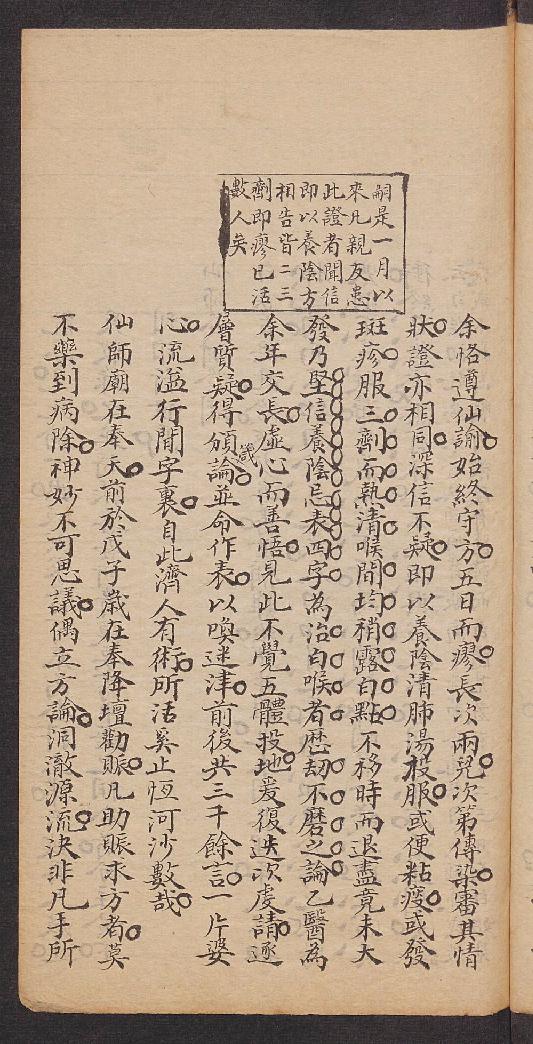 嗣是一月以
來凡親友患
此證者聞信
即以養陰方
相告皆二三
劑即瘳已活
數人矣
余恪遵仙諭始終守方五日而瘳長次兩兒次第傳染審其情
狀證亦相同深信不疑即以養陰清肺湯投服或便粘痰或發
斑疹服三劑而熱清喉間均稍露白點不移時而退盡竟未大
發乃堅信養陰忌表四字為治白喉者歷劫不磨之論乙醫為
余年交長虛心而善悟見此不覺五體投地爰復迭次虔請逐
層質疑得頒論並命作表歌以喚迷津前後共三千餘言一片婆
心流溢行間字裏自此濟人有術所活奚止恆河沙數哉
仙師廟在奉天前於戊子歲在奉降壇勸賑凡助賑求方者莫
不藥到病除神妙不可思議偶立方論洞澈源流決非凡手所